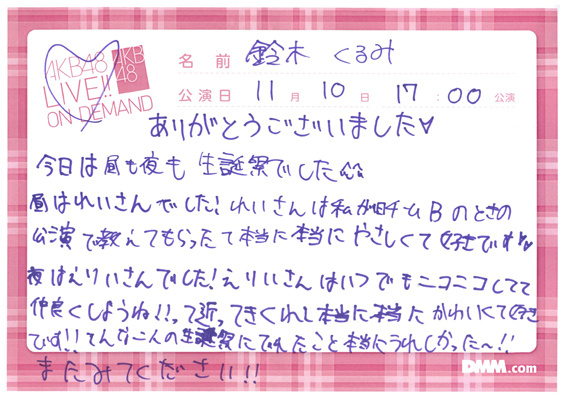 AKB48
LIVE!!
ON DEMAND
AKB
48
名前 鈴木 くるみ
公演日 11月 10日 17:00 公演
ありがとうございました♥
今日は昼も夜も 生誕祭でした
昼はれいさんでした! れいさんは私が旧チームBのときの
公演で教えてもらったて本当に本当にやさしくて好きです
夜はえりいさんでした! えりいさんはいつでもニコニコしてて
仲良くしようね!!って近ってきくれし本当に本当に かわいくて好き
です!! そんな二人の生誕祭にでれたこと本当にうれしかった〜!!
またみてください!!
DMM.com